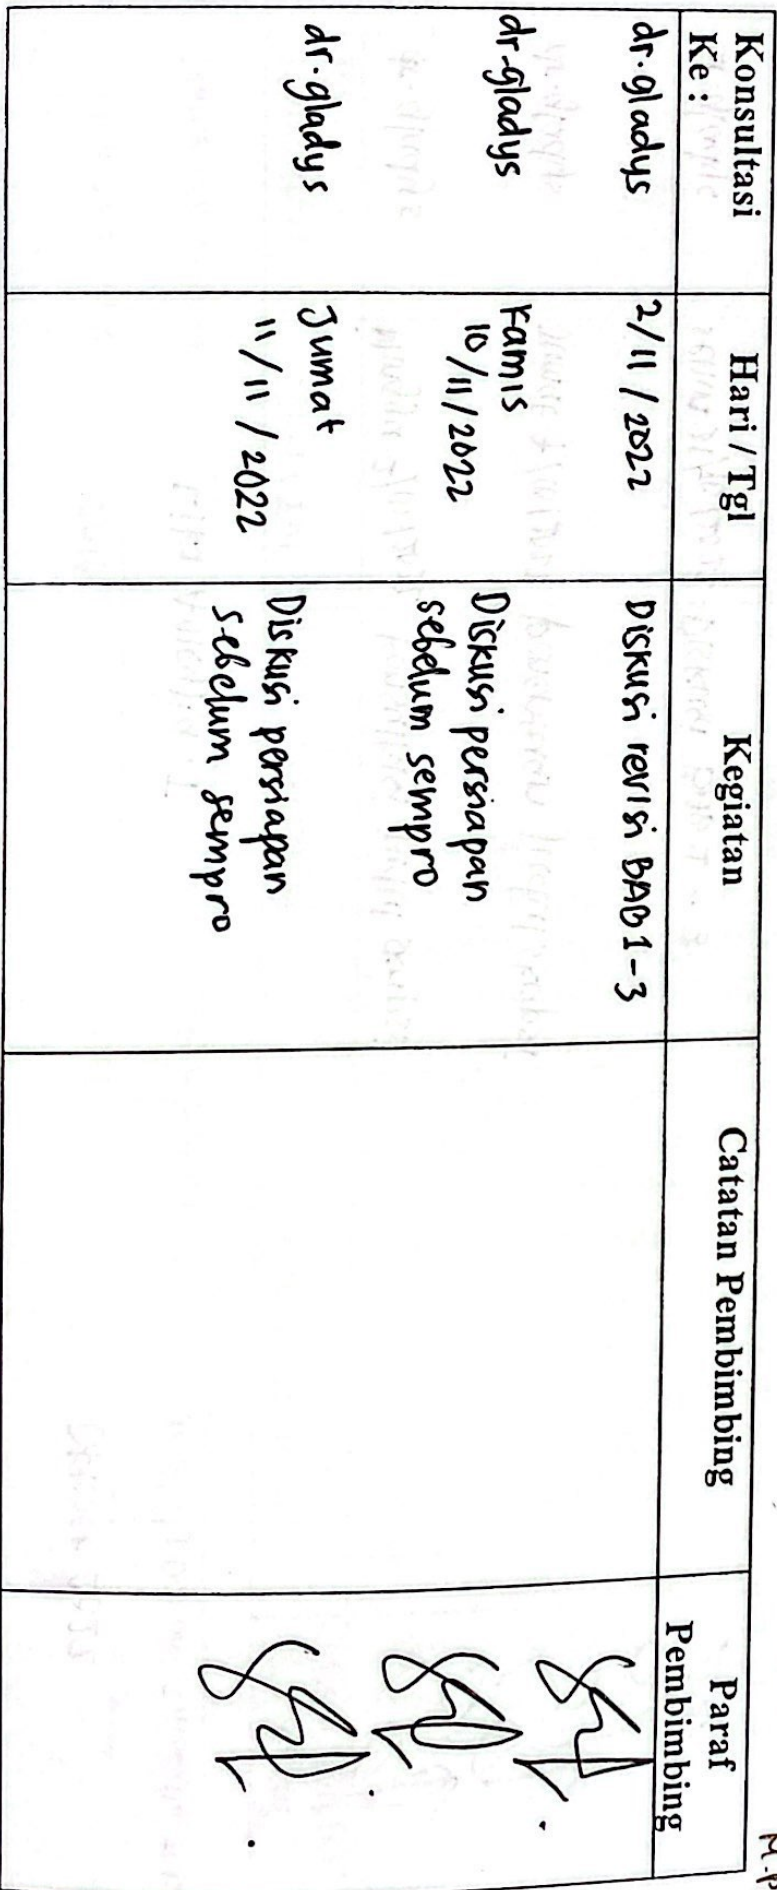 Konsultasi
Ke :
Hari / Tgl
Kegiatan
Catatan Pembimbing
Paraf
Pembimbing
dr. gladys
2/11/2022
Diskusi revisi BAB 1-3
dr. gladys
Kamis
10/11/2022
Diskusi persiapan
sebelum sempro
dr. gladys
Jumat
11/11/2022
Diskusi persiapan
sebelum sempro